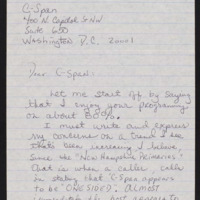 C-Span
400 N. Capitol St NW
Suite 650
Washington D.C. 20001
Dear C-Span:
Let me start off by saying
that I enjoy your programing
on about 88%.
I must write and express
my concerns on a trend I see
that's been increasing I believe,
since the "New Hampshire Primaries"
that is when a caller, calls
in stating that C-Span appears
to be "ONE SIDED". Almost